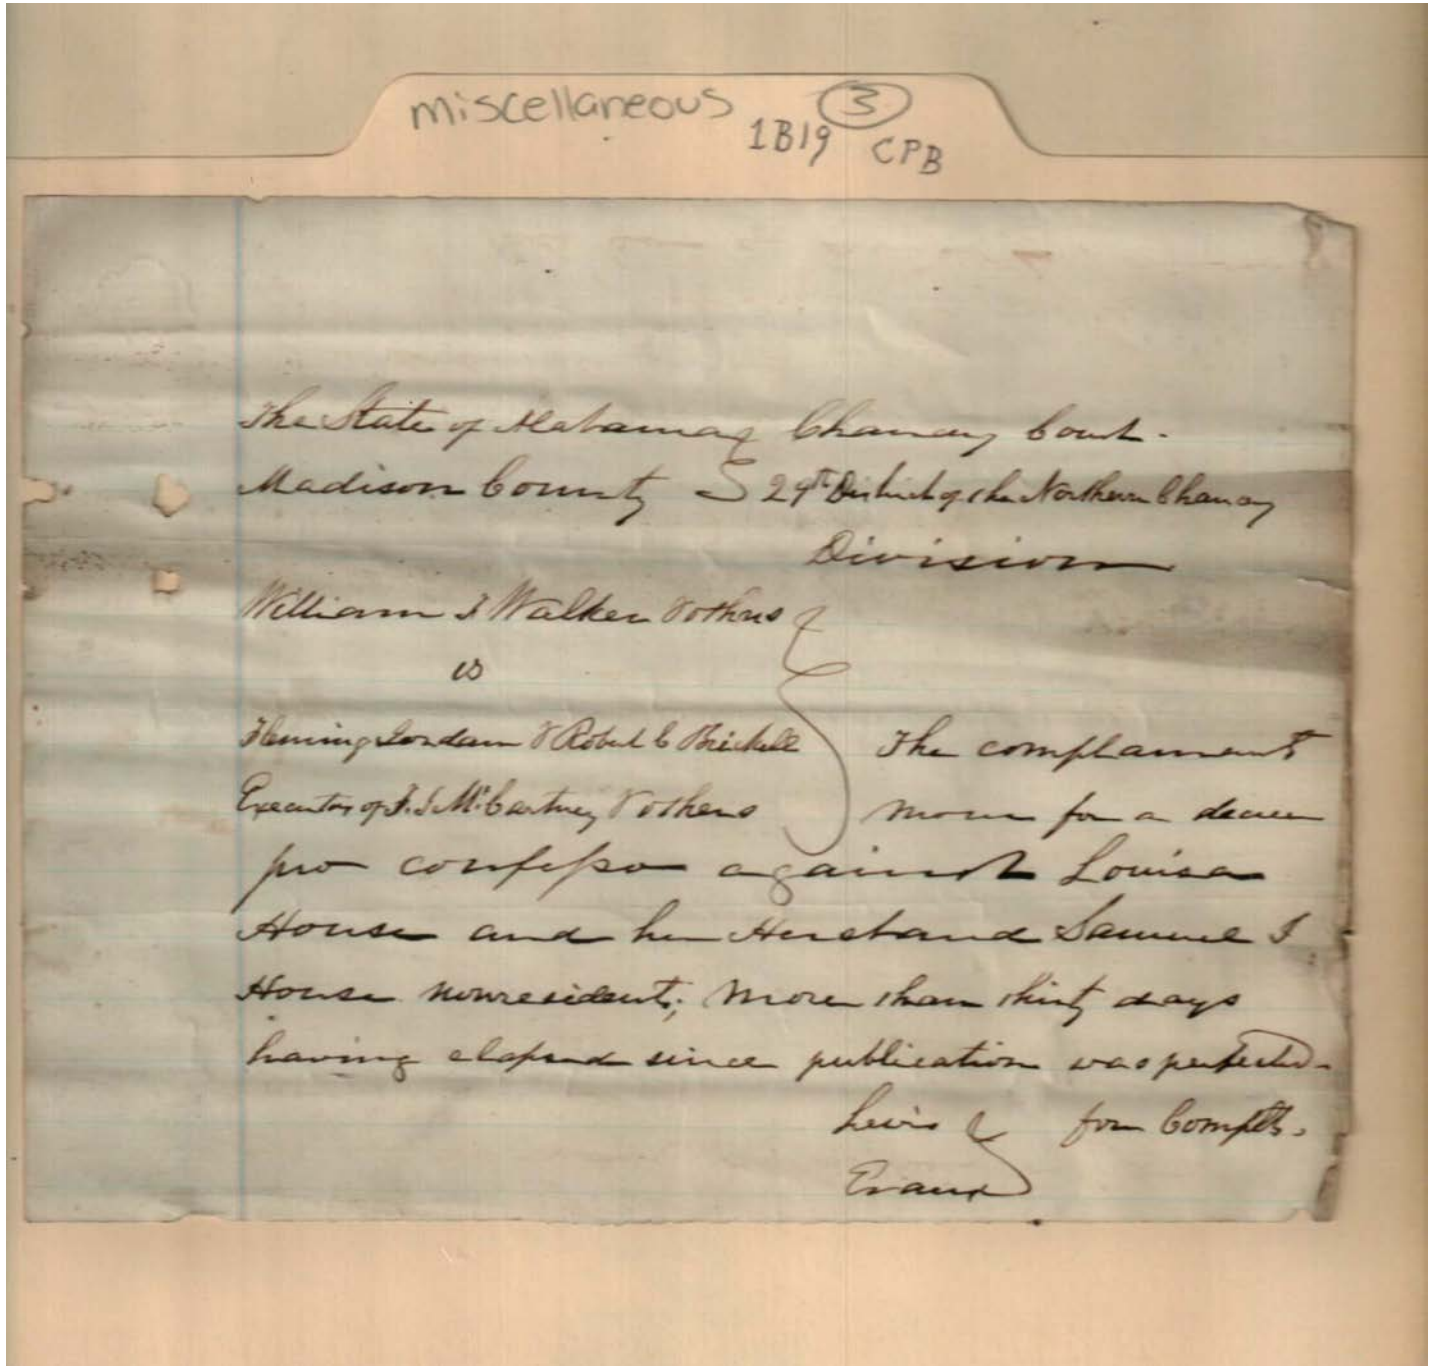 miscellaneous 3
1B19 CPB
The State of Alabama Chancery Court.
Madison County 29th District of the Northern Chancery
Division
William J Walker & others
vs
Fleming Jordan & Robert C Brickell The complainants
Executors of J. S. McCartney & others move for a decree
pro confesso against Louisa
House and her Husband Samuel J
House nonresidents; more than thirty days
having elapsed since publication was perfected.
Lewis for Complts.
Evans